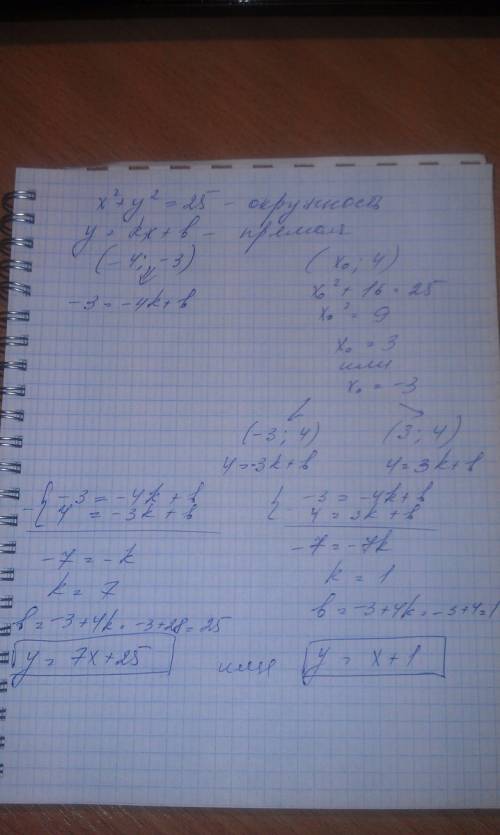 x² + y² = 25 - окружность
y = kx + b - прямая
(-4; -3)
-3 = -4k + b
(x₀; 4)
x₀² + 16 = 25
x₀² = 9
x₀ = 3
или
x₀ = -3
(-3; 4)
4 = -3k + b
(3; 4)
4 = 3k + b
-3 = -4k + b
4 = -3k + b
-7 = -k
k = 7
b = -3 + 4k = -3 + 28 = 25
y = 7x + 25
или
-3 = -4k + b
4 = 3k + b
-7 = -7k
k = 1
b = -3 + 4k = -3 + 4 = 1
y = x + 1